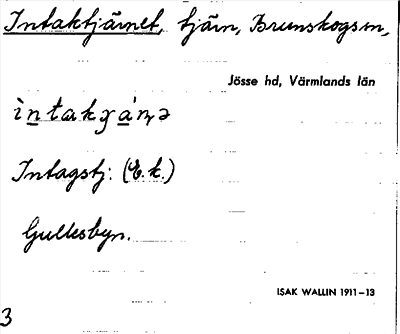 Intaktjärnet, tjärn, Brunskogs sn,
Jösse hd, Värmlands län
Intagstj: (E.k.)
Gullesbyn.
ISAK WALLIN 1911–13
3